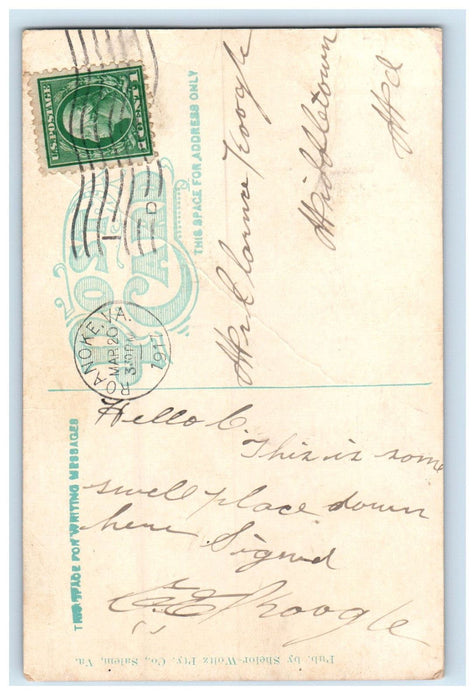 U.S. POSTAGE
1 CENT 1
ROANOKE, VA.
MAR 20
1911
POST CARD
THIS SPACE FOR WRITING MESSAGES
THIS SPACE FOR ADDRESS ONLY
Mr Clarence Koogle
Middletown
Md
Hello C.
This is some
swell place down
here Signed
C. E. Koogle
Pub. by Shelor-Woltz Pty. Co., Salem, Va.